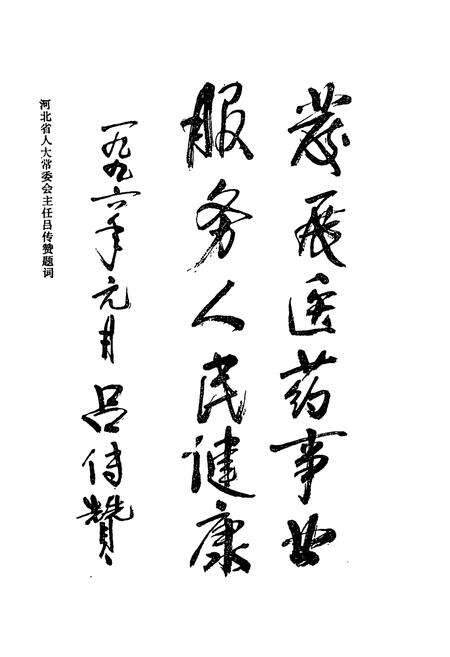 发展医药事业
服务人民健康
一九九六年元月 吕传赞
河北省人大常委会主任吕传赞题词